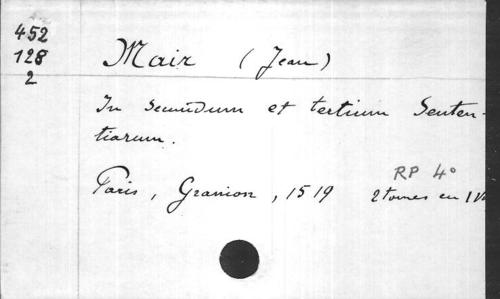 452
128
2
Mair (Jean)
In secundum et tertium Senten-
tiarum.
RP 4°
Paris, Granion, 1519 2 tomes en 1 V